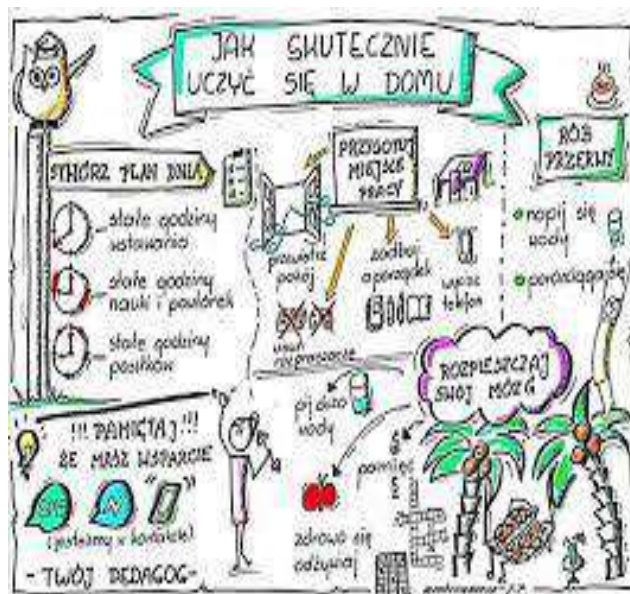 JAK SKUTECZNIE
UCZYĆ SIĘ W DOMU
STWÓRZ PLAN DNIA
stałe godziny
wstawania
stałe godziny
nauki i powtórek
stałe godziny
posiłków
PRZYGOTUJ
MIEJSCE
PRACY
przewietrz
pokój
zadbaj
o porządek
wycisz
telefon
usuń
rozpraszacze
RÓB
PRZERWY
napij się
wody
porozciągaj się
ROZPIESZCZAJ
SWÓJ MÓZG
pij dużo
wody
pamięć
zdrowo się
odżywiaj
!!! PAMIĘTAJ !!!
ŻE MASZ WSPARCIE
(jesteśmy w kontakcie)
- TWÓJ PEDAGOG -